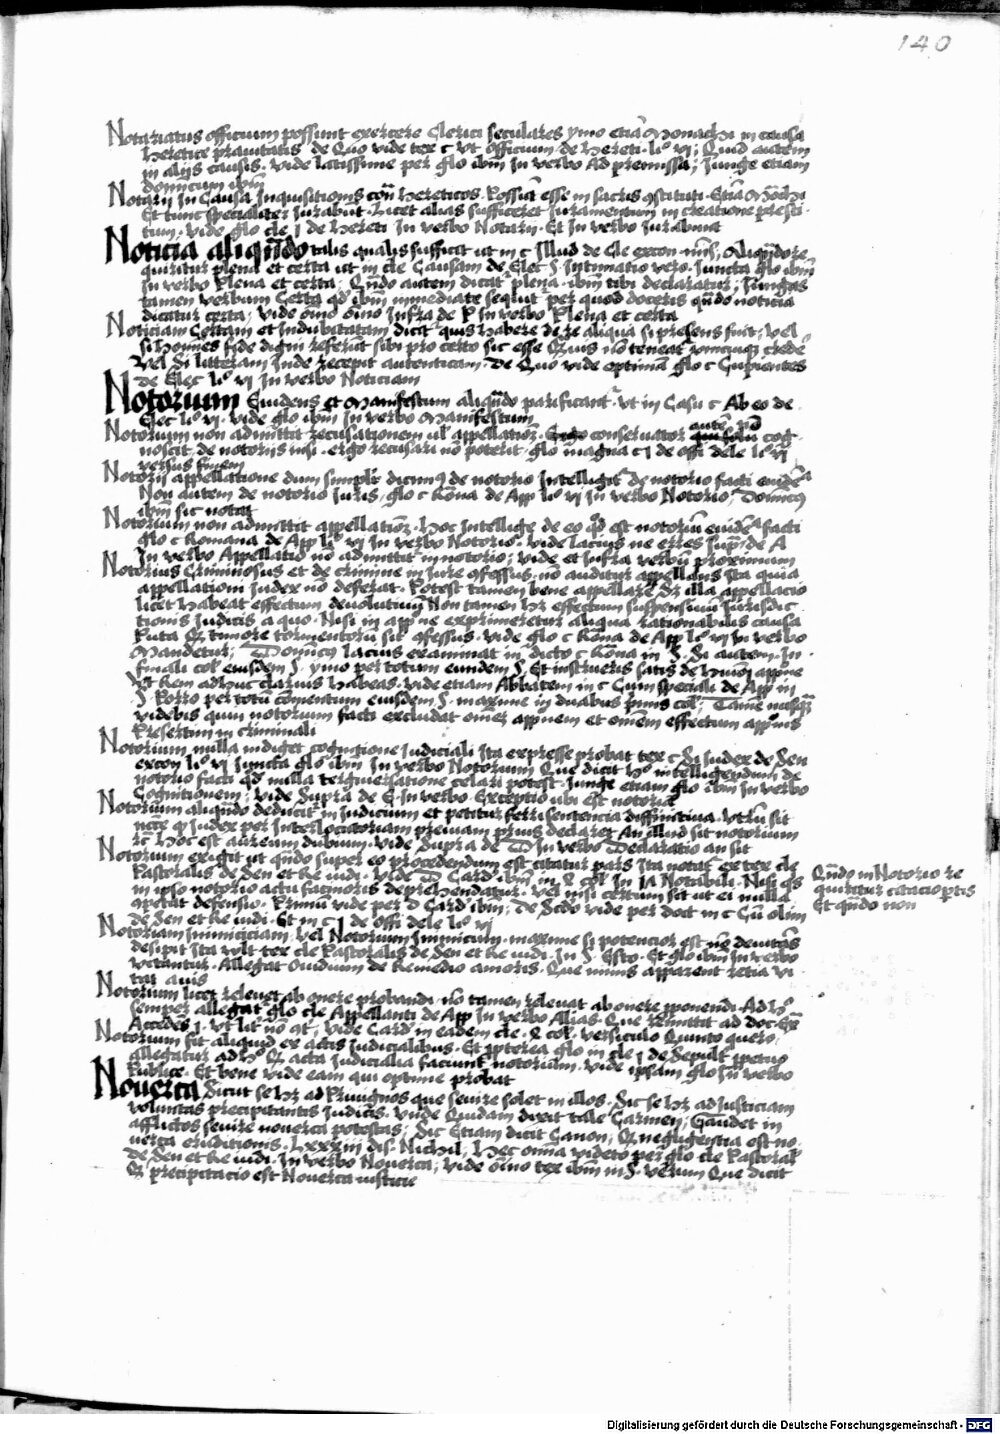 140
Notariatus officium possunt exercere Clerici seculares ymo etiã Monachi in causa
heretice prauitatis de Quo vide tex c Vt officium de hereti li° vj; Quid autem
in alijs causis. vide latissime per glo ibm̄ In verbo Ad premissa; Junge etiam
dominicum ibm̄
Notarij In Causa Inquisitionis cont hereticos. Possunt esse in sacris ɔstituti. Etiã Mõchi
Et tunc specialiter Jurabũt. Licet alias sufficeret Juramentum in creatione presti
tum. vide glo cle j de hereti In verbo Notarij. Et In verbo Jurabunt
Noticia aliqñdo talis qualis sufficit ut in c Illud de Cle excon mis; Aliqñdo re
quiritur plena et certa ut in cle Causam de Elec § Intimatio vero. Juncta glo ibm̄
In verbo Plena et certa; Qñdo autem dicat plena. ibm tibi declaratur; Jungas
tamen verbum Certa qd ibm̄ immediate seqiut per quod doceris qñdo noticia
dicatur certa; vide oĩno oĩno Infra de P In verbo Plena et certa
Noticiam Certam et Indubitatam dicit quis habere de re aliqua si presens fuit; Vel
si homines fide digni referũt sibi pro certo sic esse Quis nõ teneat vnicuiq crede
Vel Si litteram Inde recepit autenticam. De Quo vide optima glo c Cupientes
de Elec li° vj In verbo Noticiam
Notorium Euidens et Manifestum aliqñdo parificant. vt in Casu c Ab eo de
Elec li° vj. vide glo ibm In verbo Manifestum
Notorium non admittit recusationem ul appellatioz. Ergo conseruator autẽ qui solũ cog
noscit de notoriis nisi. ergo recusari nõ poterit. glo magna c j de offi dele li° vj
versus finem
Notorij appellatione dum simplr dicim9 de notorio Intelligit de notorio facti euidẽ
Non autem de notorio Juris, glo c Rõna de App li° vj In verbo Notorio; Dominic9
ibm̄ sic notat
Notorium non admittit appellatioz. hoc Intellige de eo qd est notoriũ euidẽ facti
glo c Romana de App li° vj In verbo Notorio; vide lacius ne erres supra de A
In verbo Appellatio nõ admittit in notorio; vide et Infra verbũ proximum
Notorius Criminosus et de crimine in Jure ɔfessus. nõ auditur appellans Ista quia
appellationi Judex nõ deferat. Potest tamen bene appellare Sz illa appellacio
licet habeat effectum deuolutiuũ Non tamen hz effectum suspensiuũ Jurisdic
tionis Judicis a quo. Nisi in appne exprimeretur aliqua rationabilis causa
Puta Qz timore tormentorũ sit ɔfessus. vide glo c Rõna de App li° vj In verbo
Mandetur; Dominic9 lacius examinat in dicto c Rõna in § Si autem. In
finali col eiusdem §. ymo per totum eundem § Et instrueris satis de huiõi appne
Vt Rem adhuc clarius habeas. vide etiam Abbatem in c Cum speciali de App in
§ Porro per totũ comentum eiusdem §. maxime in duabus primis col; Tamẽ nusq̃
videbis quin notorium facti excludat omẽz appnem et omẽm effectum appnis
Presertim in criminali
Notorium nulla indiget cognitione Judiciali Ita expresse probat tex c Si Judex de Sen
excon li° vj Juncta glo ibm In verbo Notorium Que dicit h° intelligendum de
notorio facti qd nulla tergiuersatione celari potest. Junge etiam glo ibm In verbo
Cognitionem; vide Supra de E. In verbo. Exceptio ubi est notoria
Notorium aliqñdo deducit in Judicium et petitur ferri sententia diffinitiua. Vtrũ sit
ncẽe qz Judex per Interlocutoriam preuiam prius declaret An illud sit notorium
rc̃ hoc est aureum dubium. vide Supra de D In verbo Declaratio an sit
Notorium exigit ut qñdo super eo procedendum est citatur pars Ita notat ex tex cle
Pastoralis de Sen et Re iudi. vide D Card ibm in 2 col. In 19 Notabili. Nisi qs
in ipso notorio actu facinoris deprehendatur. vel nisi certum sit ut ei nulla
ɔpetat defensio. Primũ vide per d Card ibm; de Scdo vide per doct in c Cũ olim
de Sen et Re iudi. Et in c j de offi dele li° vj
Qñdo in Notorio re
quiritur citacio ptis
Et qñdo non
Notoriam Inimiciciam. Vel Notorium Inimicum. maxime si potencior est nõ deuitãs
desipit Ita vult tex cle Pastoralis de Sen et Re iudi. In §. Esto. Et glo ibm In verbo
vitantur. Allegat Ouidium de Remedio amoris. Que nimis apparent retia vi
tat auis
Notorium licet releuet ab onere probandi. nõ tamen releuat ab onere pponendi. Ad h°
semper allegat glo cle Appellanti de App In verbo Alias. Que remittit ad doc. Ex
Accedẽs j. Vt lit nõ ɔt; vide Card in eadem cle. 2 col. versiculo Quinto quero;
Notorium fit aliquid ex actis Judicialibus. Et iptorea glo in cle j de Sepult ipetus
allegatur ad h° Qz acta Judicialia faciunt notorium. vide ipsam glo In verbo
Publice. Et bene vide eam qui optime probat
Nouerca Sicut se hz ad Priuignos que seuire solet in illos. Sic se hz ad Justiciam
voluntas precipitantis Judicis. vnde Quidam dixit tale Carmen; Gaudet in
afflictos seuire nouerca potestas; Sic Etiam dicit Canon; Qz negligentia est no
uerca eruditionis. Lxxxiij dis. Nichil; hec omnia videto per glo cle Pastoral
de Sen et Re iudi. In verbo Nouerca; vide oĩno tex ibm in §. verum Que dicit
Qz precipitacio est Nouerca iusticie
Digitalisierung gefördert durch die Deutsche Forschungsgemeinschaft - DFG